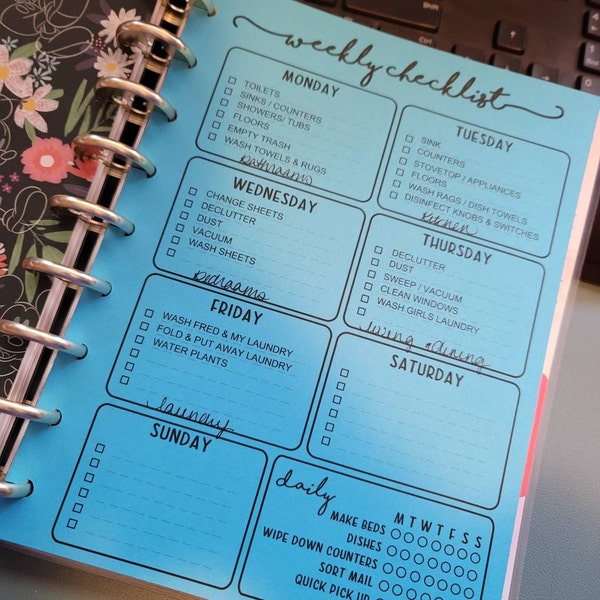 weekly checklist
MONDAY
TOILETS
SINKS / COUNTERS
SHOWERS/ TUBS
FLOORS
EMPTY TRASH
WASH TOWELS & RUGS
Bathrooms
TUESDAY
SINK
COUNTERS
STOVETOP / APPLIANCES
FLOORS
WASH RAGS / DISH TOWELS
DISINFECT KNOBS & SWITCHES
Kitchen
WEDNESDAY
CHANGE SHEETS
DECLUTTER
DUST
VACUUM
WASH SHEETS
Bedrooms
THURSDAY
DECLUTTER
DUST
SWEEP / VACUUM
CLEAN WINDOWS
WASH GIRLS LAUNDRY
living & dining
FRIDAY
WASH FRED & MY LAUNDRY
FOLD & PUT AWAY LAUNDRY
WATER PLANTS
laundry
SATURDAY
SUNDAY
daily
M T W T F S S
MAKE BEDS
DISHES
WIPE DOWN COUNTERS
SORT MAIL
QUICK PICK UP